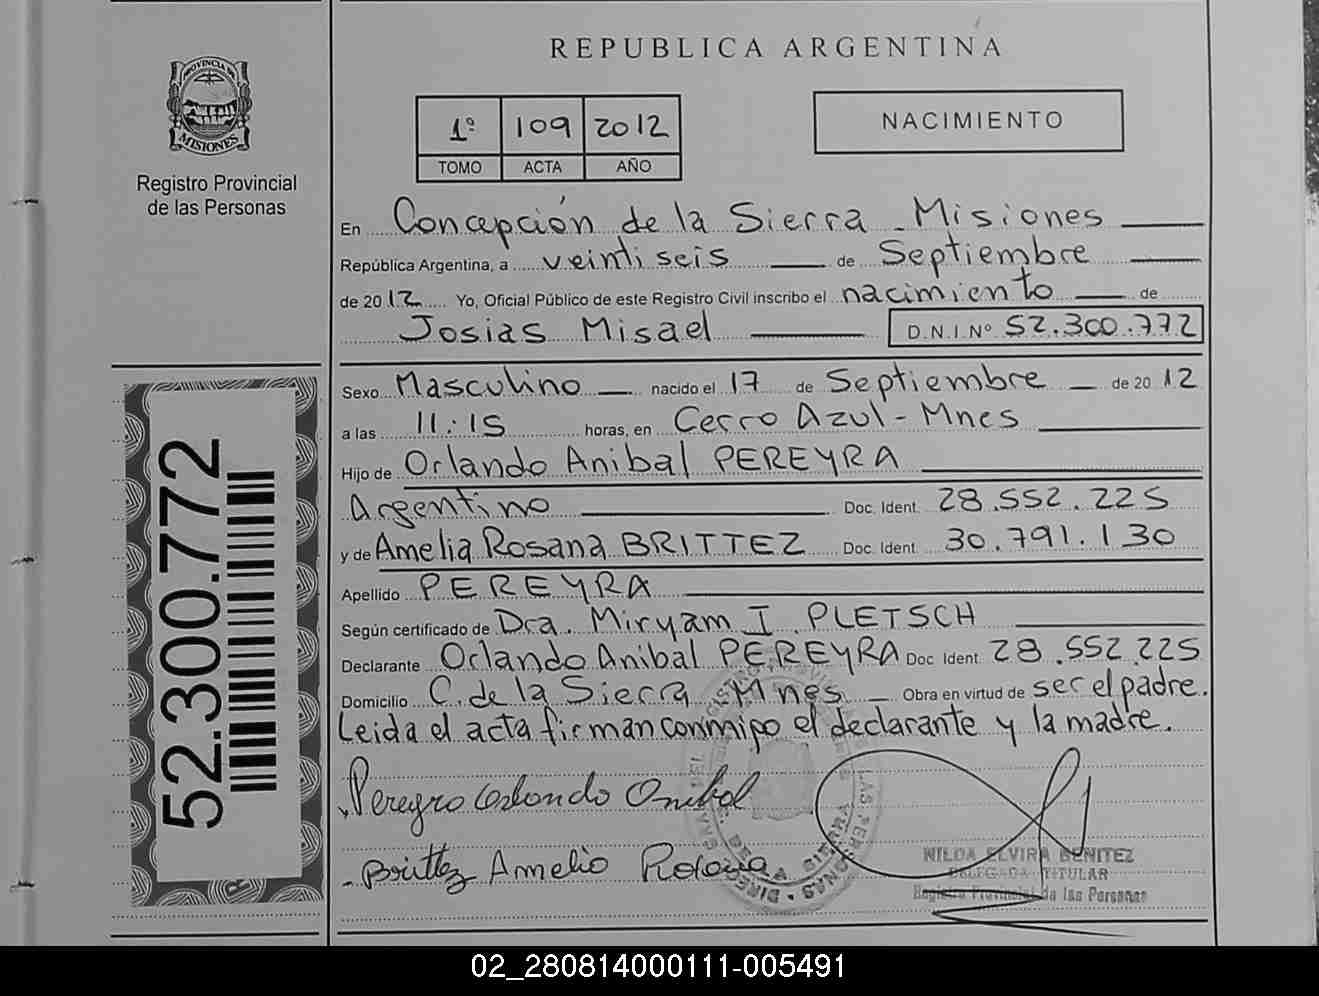 REPUBLICA ARGENTINA
PROVINCIA DE
MISIONES
Registro Provincial
de las Personas
1º 109 2012
TOMO ACTA AÑO
NACIMIENTO
En Concepción de la Sierra - Misiones
República Argentina, a veintiseis de Septiembre
de 2012 Yo, Oficial Público de este Registro Civil inscribo el nacimiento de
Josias Misael D.N.I.Nº 52.300.772
Sexo Masculino nacido el 17 de Septiembre de 2012
a las 11:15 horas, en Cerro Azul - Mnes
Hijo de Orlando Anibal PEREYRA
Argentino Doc. Ident. 28.552.225
y de Amelia Rosana BRITTEZ Doc. Ident. 30.791.130
Apellido PEREYRA
Según certificado de Dra. Miryam I. PLETSCH
Declarante Orlando Anibal PEREYRA Doc Ident. 28.552.225
Domicilio C. de la Sierra Mnes Obra en virtud de ser el padre.
Leida el acta firman conmigo el declarante y la madre.
Pereyra Orlando Anibal
Brittez Amelia Rosana
NILDA ELVIRA BENITEZ
DELEGADA TITULAR
Registro Provincial de las Personas
52.300.772
02_280814000111-005491